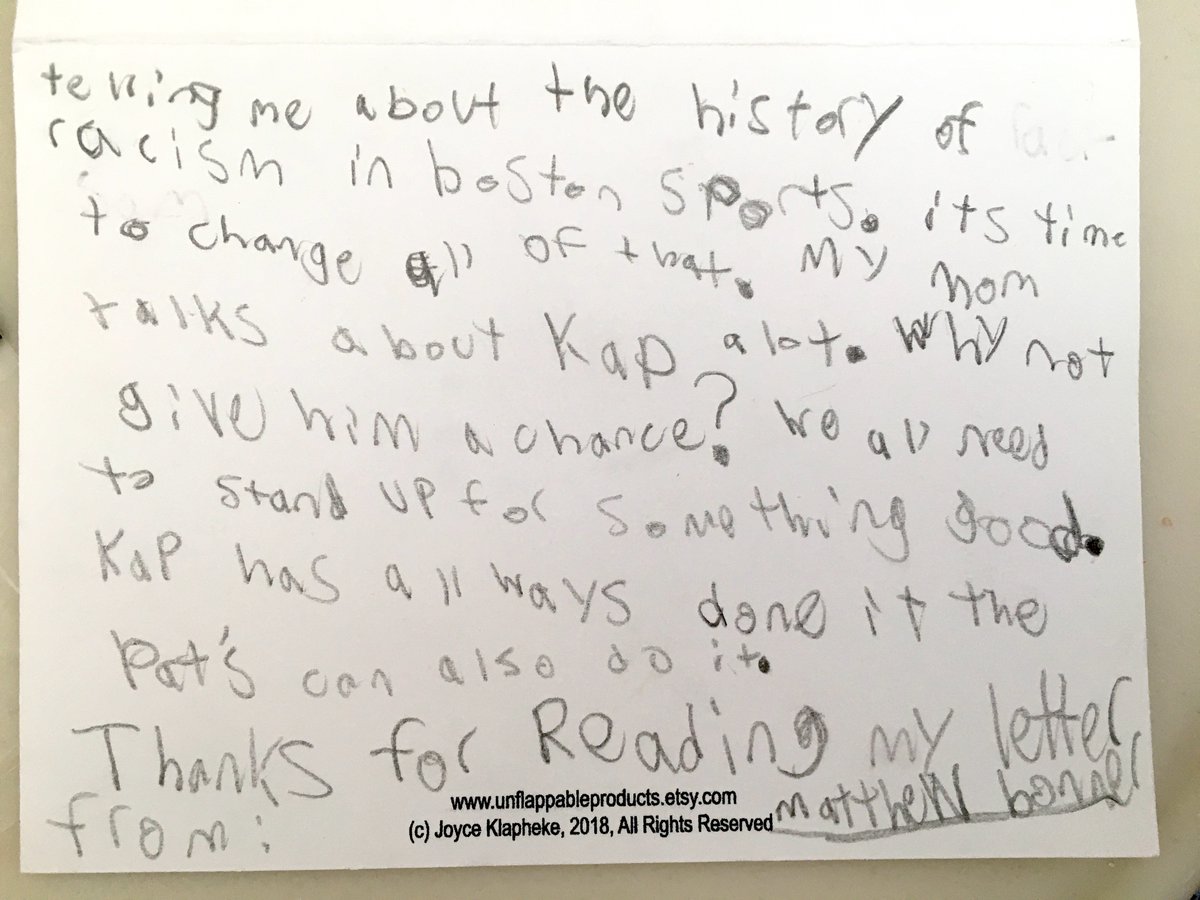 telling me about the history of
racism in boston sports. its time
to change all of that. My mom
talks about Kap alot. Why not
give him a chance? We all need
to stand up for something good.
Kap has all ways done it the
pat's can also do it.
Thanks for Reading my letter
from: matthew bonner
www.unflappableproducts.etsy.com
(c) Joyce Klapheke, 2018, All Rights Reserved